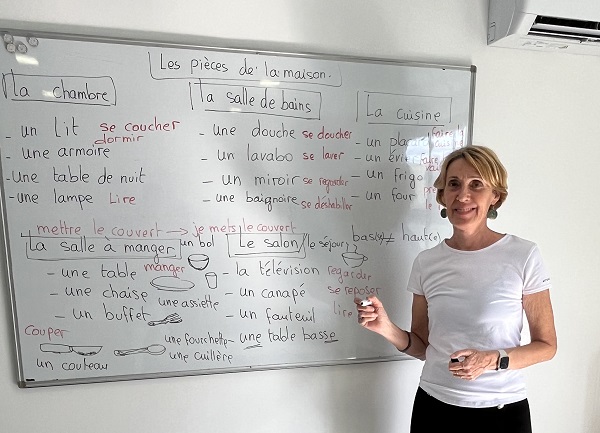 Les pièces de la maison.
La chambre
- un lit se coucher
dormir
- une armoire
- une table de nuit
- une lampe Lire
la salle de bains
- une douche se doucher
- un lavabo se laver
- un miroir se regarder
- une baignoire se déshabiller
La cuisine
- un
- un
- un frigo
- un four
mettre le couvert → je mets le couvert
La salle à manger
un bol
- une table manger
- une chaise une assiette
- un buffet
couper
un couteau
une fourchette
une cuillère
Le salon/le séjour
bas(se) ≠ haut(e)
- la télévision regarder
- un canapé se reposer
- un fauteuil lire
- une table basse